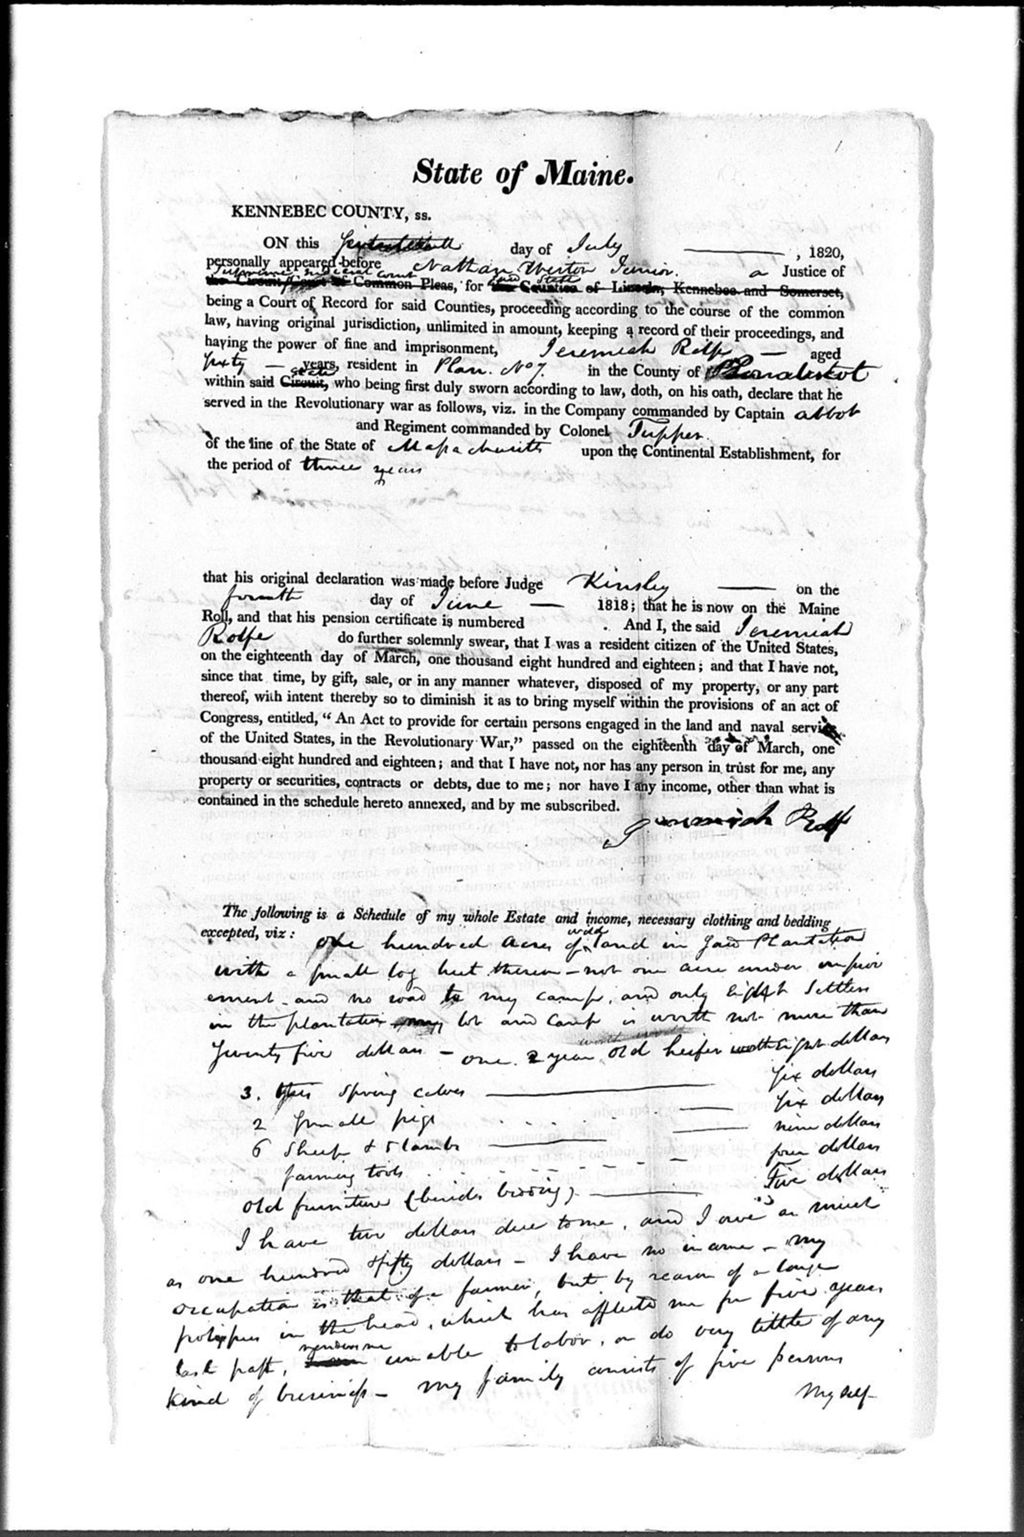 State of Maine.
KENNEBEC COUNTY, ss.
ON this day of July , 1820,
personally appeared before Nathan Weston Junior. a Justice of
Supreme Judicial Court
the Circuit Court of Common Pleas, for the Counties of Lincoln, Kennebec and Somerset,
said State
being a Court of Record for said Counties, proceeding according to the course of the common
law, having original jurisdiction, unlimited in amount, keeping a record of their proceedings, and
having the power of fine and imprisonment, Jeremiah Rolfe — aged
sixty — years, resident in Plan. No 7. in the County of Penobscot
State
within said Circuit, who being first duly sworn according to law, doth, on his oath, declare that he
served in the Revolutionary war as follows, viz. in the Company commanded by Captain Abbot
and Regiment commanded by Colonel Tupper.
of the line of the State of Massachusetts upon the Continental Establishment, for
the period of three years
that his original declaration was made before Judge Kinsley — on the
fourth day of June — 1818; that he is now on the Maine
Roll, and that his pension certificate is numbered . And I, the said Jeremiah
Rolfe do further solemnly swear, that I was a resident citizen of the United States,
on the eighteenth day of March, one thousand eight hundred and eighteen; and that I have not,
since that time, by gift, sale, or in any manner whatever, disposed of my property, or any part
thereof, with intent thereby so to diminish it as to bring myself within the provisions of an act of
Congress, entitled, “ An Act to provide for certain persons engaged in the land and naval service
of the United States, in the Revolutionary War,” passed on the eighteenth day of March, one
thousand eight hundred and eighteen; and that I have not, nor has any person in trust for me, any
property or securities, contracts or debts, due to me; nor have I any income, other than what is
contained in the schedule hereto annexed, and by me subscribed.
Jeremiah Rolf
The following is a Schedule of my whole Estate and income, necessary clothing and bedding
excepted, viz: One hundred acres of wild land in said Plantation
with a small log hut thereon – not one acre under improv
ement – and no road to my camp, and only Eight Settlers
in the plantation my lot and Camp is worth not more than
Twenty five dollars – one 2 year old heifer worth Eight dollars
3. Spring calves — Six dollars
2 small pigs — Six dollars
6 Sheep & 5 lambs — nine dollars
farming tools — four dollars
Old furniture (besides bedding) — Five dollars
I have two dollars due to me, and I owe as much
as one hundred & fifty dollars – I have no income – my
occupation is that of a farmer, but by reason of a large
polippus in the head, which has afflicted me for five years
last past, renders me unable to labor, or do very little of any
kind of business – my family consists of five persons
My self